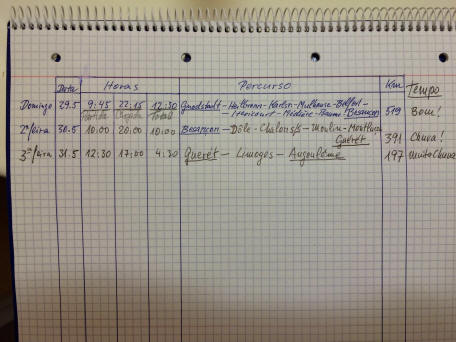 Data Horas Percurso Km Tempo
Domingo 29.5 9:45 22:15 12:30 Heilbronn - Mulhouse - Belfort -
Partida Chegada Total Besançon 519 Bom!
2ª/feira 30.5 10:00 20:00 10:00 Besançon - Dôle - Chalons - Moulin -
Guéret 391 Chuva!
3ª/feira 31.5 12:30 17:00 4:30 Guéret - Limoges - Angoulême 197 muita Chuva